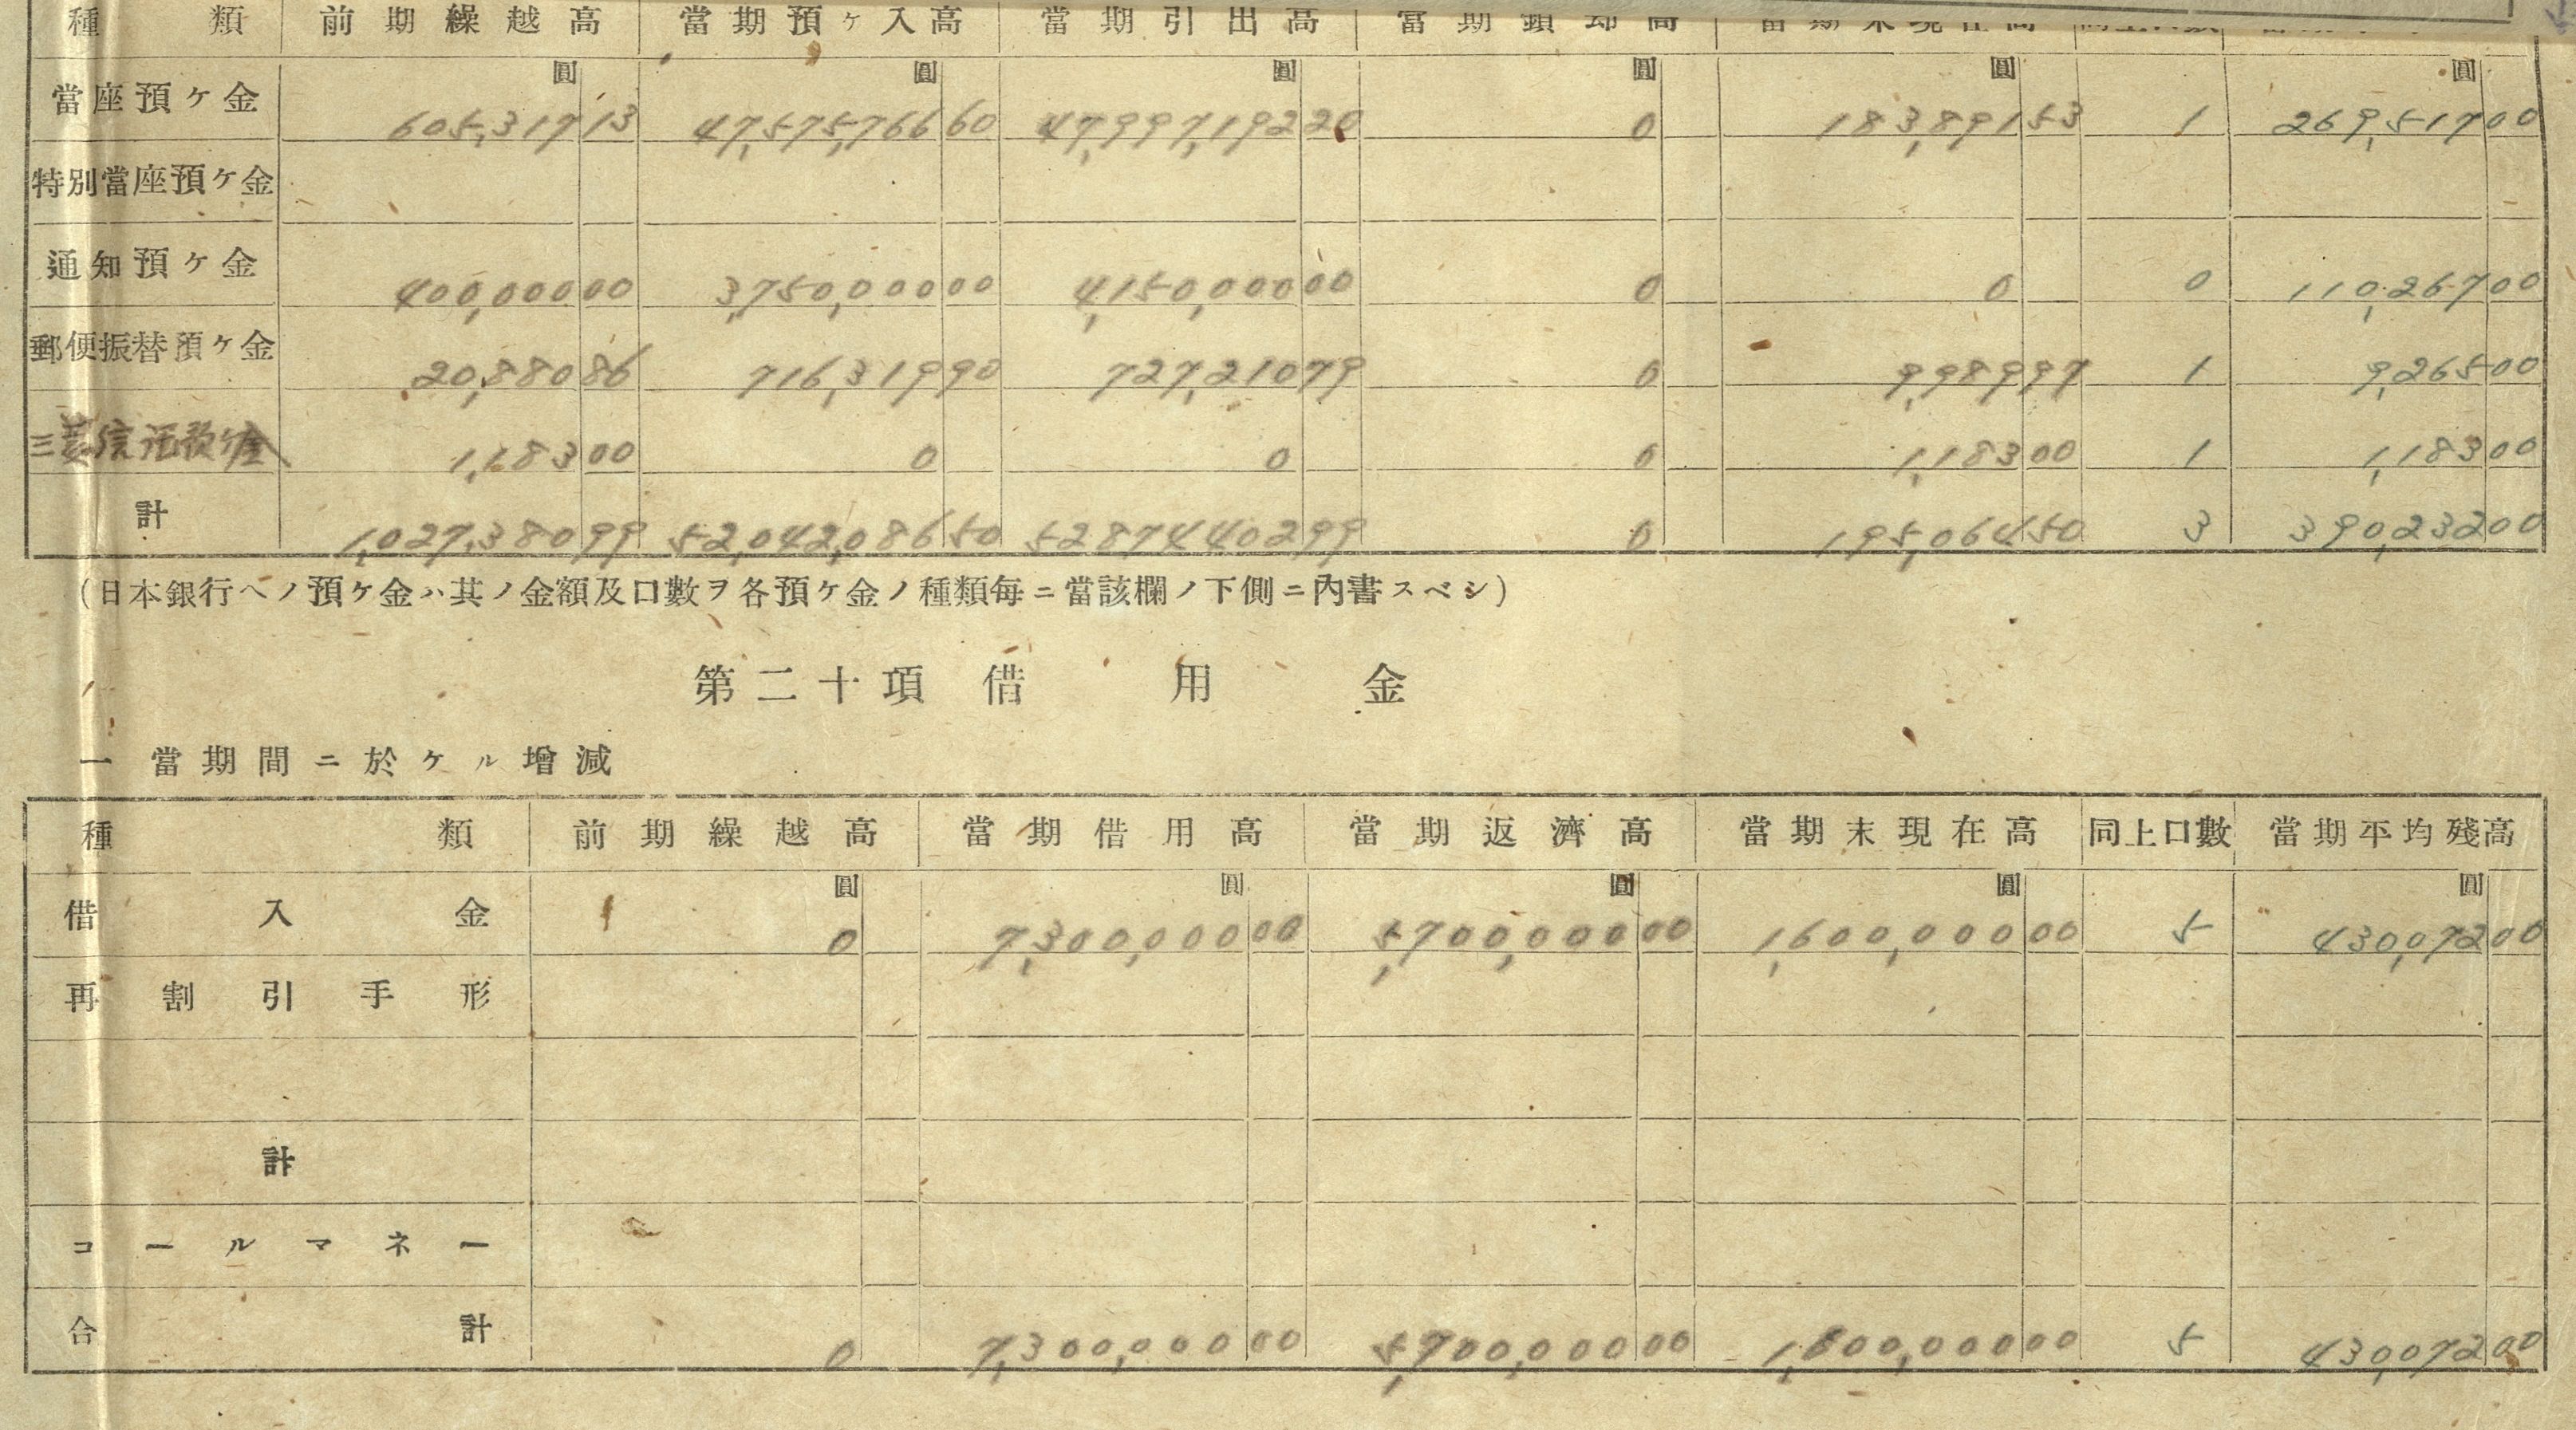 種類 前期繰越高 當期預ヶ入高 當期引出高 當期鎖却高 當期末現在高 同上口數
圓 圓 圓 圓 圓 圓
當座預ヶ金 605,317 13 47,575,766 60 47,997,192 20 0 183,891 53 1 269,517 00
特別當座預ヶ金
通知預ヶ金 400,000 00 3,750,000 00 4,150,000 00 0 0 0 110,267 00
郵便振替預ヶ金 20,880 86 716,319 90 727,210 79 0 9,989 97 1 9,265 00
三菱信託預ヶ金 1,183 00 0 0 0 1,183 00 1 1,183 00
計 1,027,380 99 52,042,086 50 52874402 99 0 195,064 50 3 390,232 00
(日本銀行ヘノ預ヶ金ハ其ノ金額及口數ヲ各預ヶ金ノ種類每ニ當該欄ノ下側ニ內書スベシ)
第二十項 借用金
一 當期間ニ於ケル增減
種類 前期繰越高 當期借用高 當期返濟高 當期末現在高 同上口數 當期平均殘高
圓 圓 圓 圓 圓
借入金 0 7,300,000 00 5,700,000 00 1,600,000 00 5 430,072 00
再割引手形
計
コールマネー
合計 0 7,300,000 00 5,700,000 00 1,600,000 00 5 430,072 00